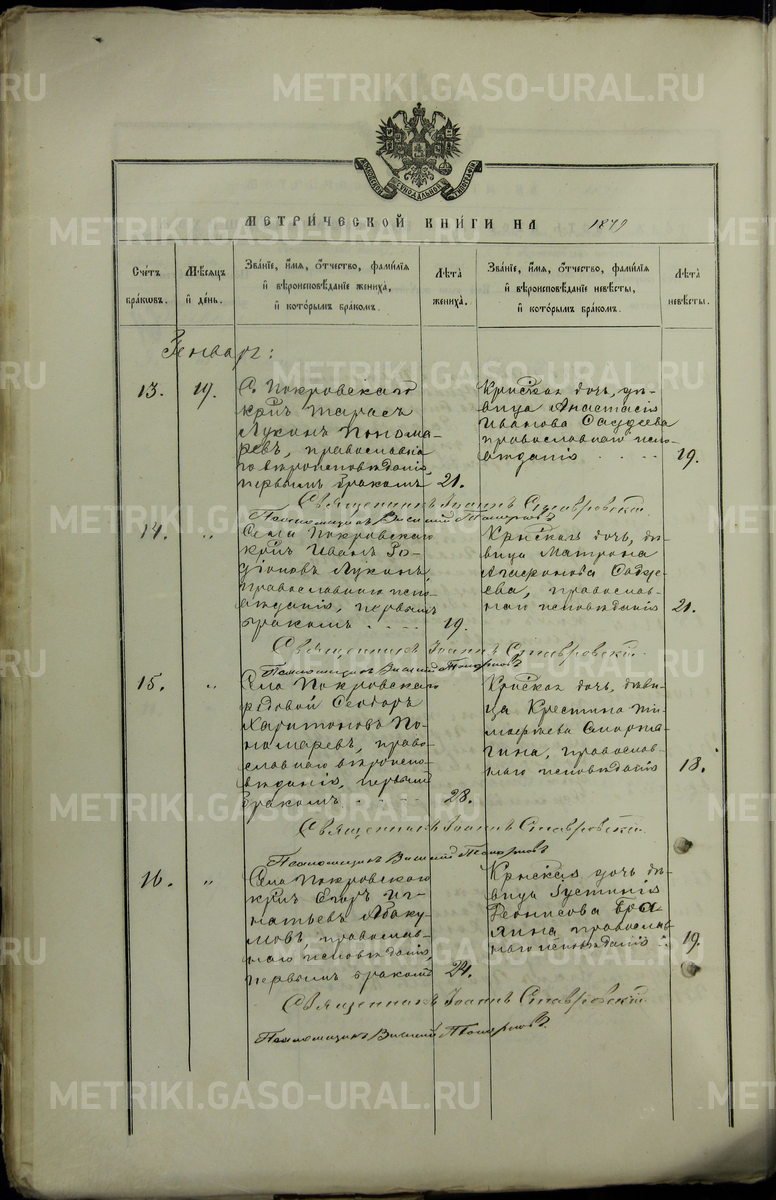 METRIKI.GASO-URAL.RU
МЕТРИ́ЧЕСКОЙ КНИ́ГИ НА 1879
Сче́тъ бра́кѡвъ.
Мѣ́сяцъ и҆ де́нь.
Зва́нїе, и҆́мя, ѻ҆́тчество, фами́лїя и҆ вѣроисповѣ́данїе жениха̀, и҆ кото́рымъ бра́комъ.
Лѣ́та жениха̀.
Зва́нїе, и҆́мя, ѻ҆́тчество, фами́лїя и҆ вѣроисповѣ́данїе невѣ́сты, и҆ кото́рымъ бра́комъ.
Лѣ́та невѣ́сты.
Генварь:
13.
19.
С. Покровскаго
крнъ Тарасъ
Лукинъ Понома-
ревъ, православна-
го вѣроисповѣданія,
первымъ бракомъ
21.
Крнская дочь, дѣ-
вица Анастасія
Иванова
православнаго испо-
вѣданія . . . .
19.
Священникъ Іоаннъ Ставровскій.
Псаломщикъ Василій Топорковъ
14.
"
Села Покровскаго
крнъ Иванъ Ро-
діоновъ Лукинъ,
православнаго испо-
вѣданія, первымъ
бракомъ . . . .
19.
Крнская дочь, дѣ-
вица Матрона
Агафонова
православ-
наго исповѣданія
21.
Священникъ Іоаннъ Ставровскій.
Псаломщикъ Василій Топорковъ
15.
"
Села Покровскаго
рядовой Ѳеодоръ
Харитоновъ По-
номаревъ, право-
славнаго вѣроиспо-
вѣданія, первымъ
бракомъ . . . .
28.
Крнская дочь, дѣви-
ца Крестина Ти-
моѳеева
православ-
наго исповѣданія
18.
Священникъ Іоаннъ Ставровскій.
Псаломщикъ Василій Топорковъ
16.
"
Села Покровскаго
крнъ Егоръ Иг-
натьевъ Абаку-
мовъ, православ-
наго исповѣданія,
первымъ бракомъ
24.
Крнская дочь дѣ-
вица Іустинія
Деонисова
православ-
наго исповѣданія . .
19.
Священникъ Іоаннъ Ставровскій
Псаломщикъ Василій Топорковъ